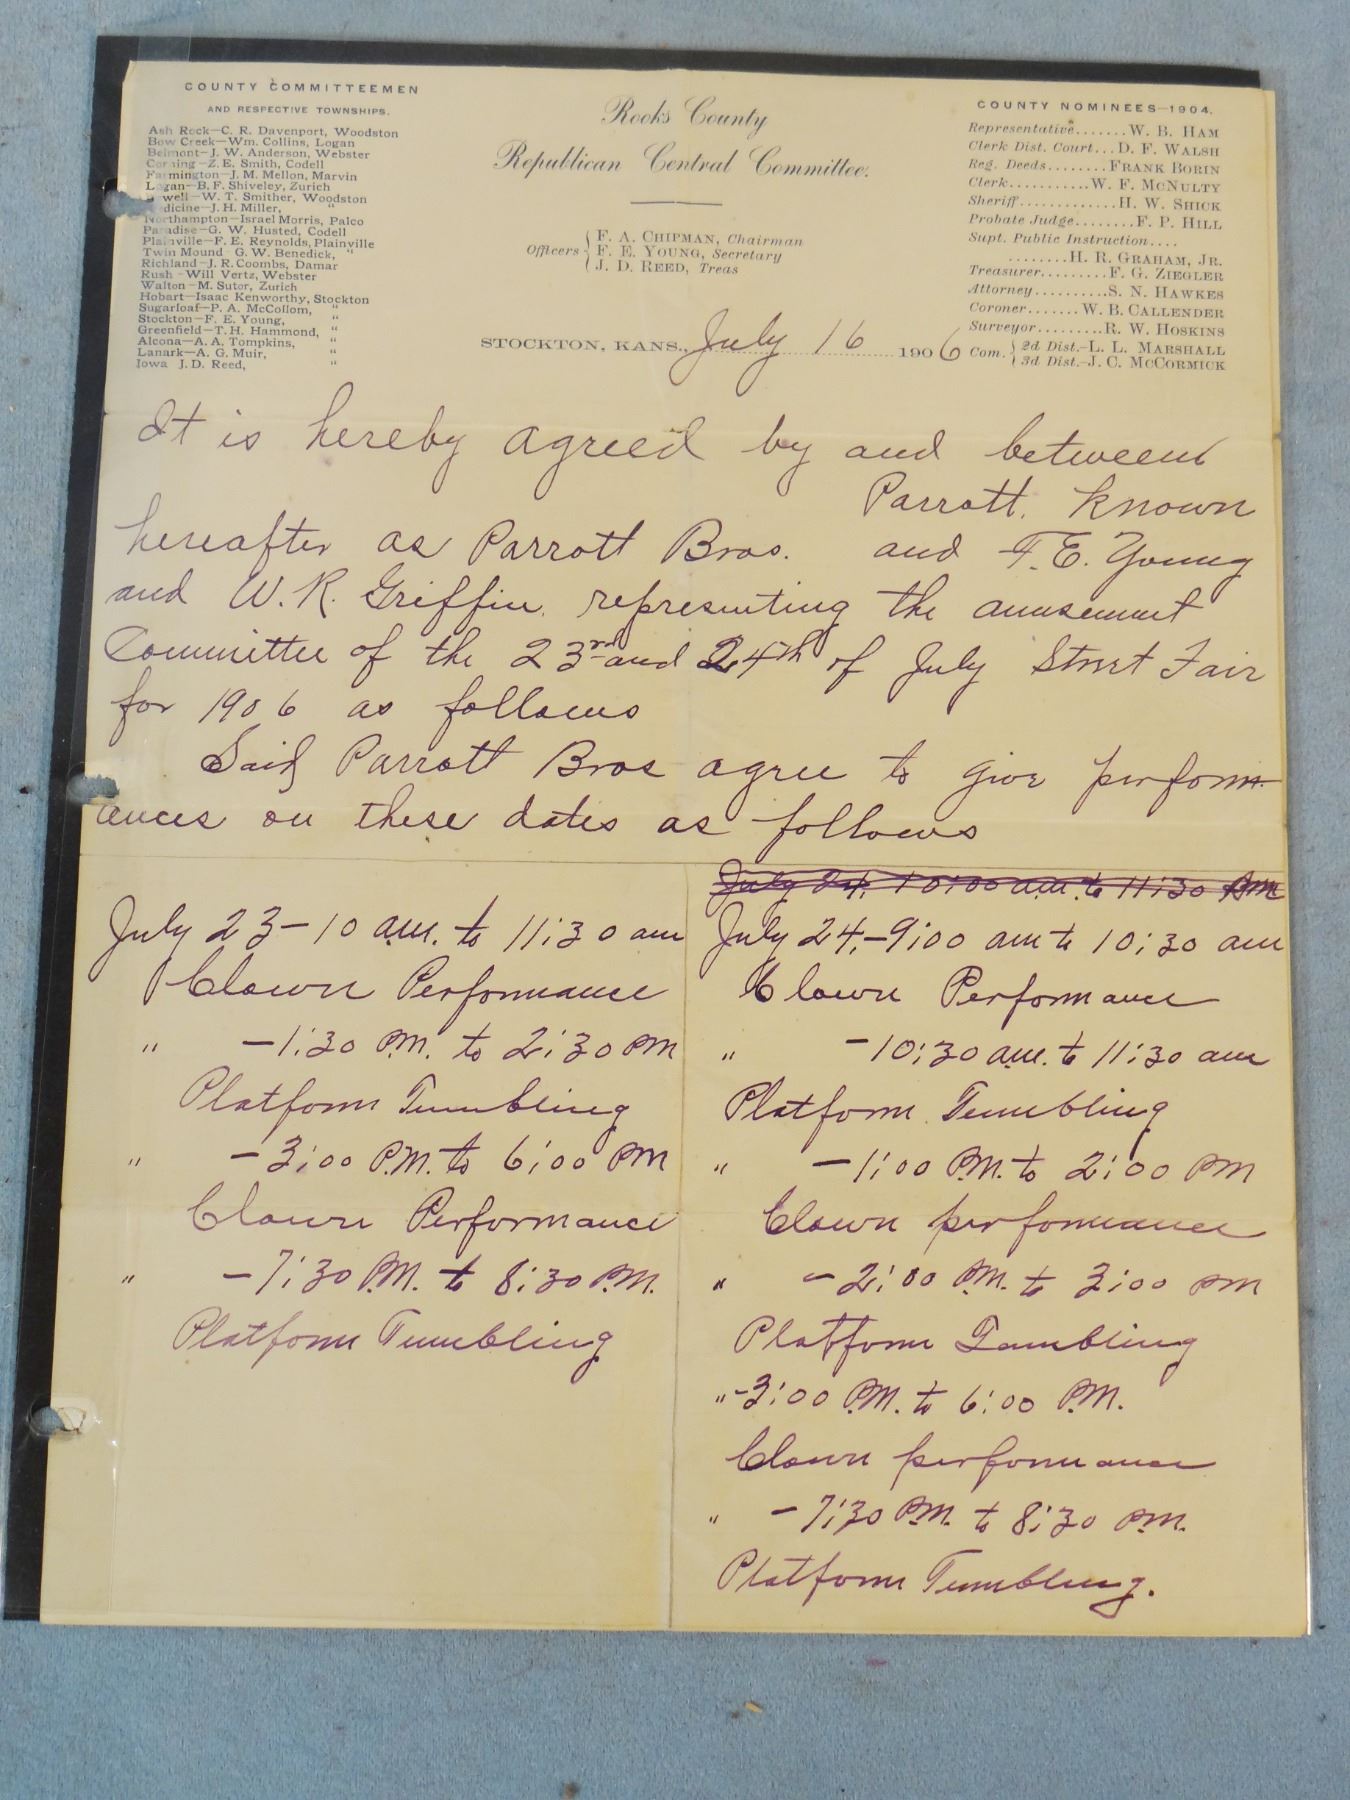 COUNTY COMMITTEEMEN
AND RESPECTIVE TOWNSHIPS.
Ash Rock—C. R. Davenport, Woodston
Bow Creek—Wm. Collins, Logan
Belmont—J. W. Anderson, Webster
Corning—Z. E. Smith, Codell
Farmington—J. M. Mellon, Marvin
Logan—B. F. Shiveley, Zurich
well—W. T. Smither, Woodston
dicine—J. H. Miller, "
Northampton—Israel Morris, Palco
Paradise—G. W. Husted, Codell
Plainville—F. E. Reynolds, Plainville
Twin Mound G. W. Benedick, "
Richland—J. R. Coombs, Damar
Rush—Will Vertz, Webster
Walton—M. Sutor, Zurich
Hobart—Isaac Kenworthy, Stockton
Sugarloaf—P. A. McCollom, "
Stockton—F. E. Young, "
Greenfield—T. H. Hammond, "
Alcona—A. A. Tompkins, "
Lanark—A. G. Muir, "
Iowa J. D. Reed, "
Rooks County
Republican Central Committee.
Officers { F. A. CHIPMAN, Chairman
F. E. YOUNG, Secretary
J. D. REED, Treas
COUNTY NOMINEES—1904.
Representative.......W. B. HAM
Clerk Dist. Court...D. F. WALSH
Reg. Deeds........FRANK BORIN
Clerk...........W. F. MCNULTY
Sheriff.............H. W. SHICK
Probate Judge........F. P. HILL
Supt. Public Instruction....
........H. R. GRAHAM, JR.
Treasurer.........F. G. ZIEGLER
Attorney..........S. N. HAWKES
Coroner.......W. B. CALLENDER
Surveyor.........R. W. HOSKINS
Com. { 2d Dist.—L. L. MARSHALL
3d Dist.—J. C. MCCORMICK
STOCKTON, KANS., July 16 1906
It is hereby agreed by and between
Parrott. known
hereafter as Parrott Bros. and F. E. Young
and W. R. Griffin. representing the amusement
Committee of the 23rd and 24th of July Street Fair
for 1906 as follows
Said Parrott Bros agree to give perform-
ances on these dates as follows
July 23 – 10 a.m. to 11:30 am
Clown Performance
" – 1:30 P.M. to 2:30 PM
Platform Tumbling
" – 3:00 P.M. to 6:00 PM
Clown Performance
" – 7:30 P.M. to 8:30 P.M.
Platform Tumbling
July 24, 10:00 a.m. to 11:30 am
July 24, – 9:00 am to 10:30 am
Clown Performance
" – 10:30 a.m. to 11:30 am
Platform Tumbling
" – 1:00 P.M. to 2:00 PM
Clown performance
" – 2:00 P.M. to 3:00 PM
Platform Tumbling
" – 3:00 P.M. to 6:00 P.M.
Clown performance
" – 7:30 P.M. to 8:30 P.M.
Platform Tumbling.